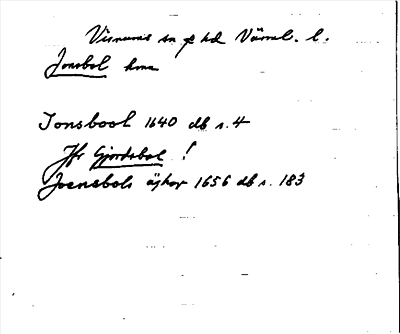 Visnums sn hd Värml. l.
Jonsbol hmn
Jonsbool 1640 db s. 4
Jfr Gjordsbol !
Joensbols ägher 1656 db s. 183